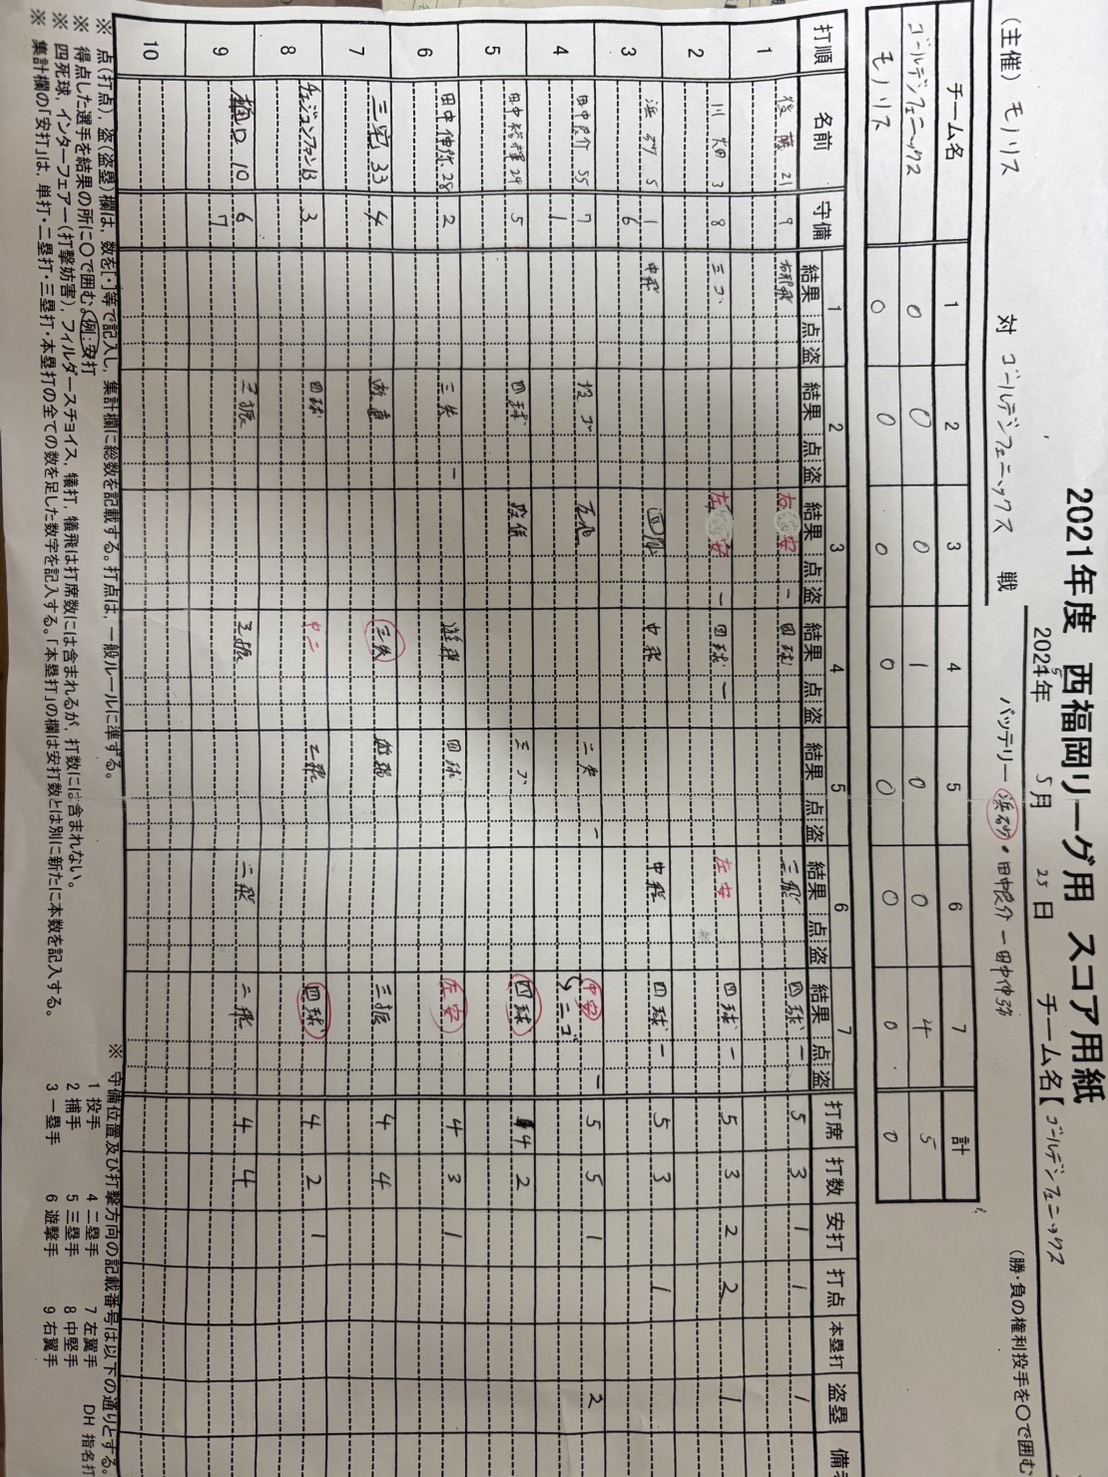 2021年度 西福岡リーグ用 スコア用紙
2025年 5月 25日 チーム名【ゴールデンフェニックス
(主催) モノリス 対 ゴールデンフェニックス 戦 バッテリー 浜砂・田中良介ー田中伸弥
(勝・負の権利投手を〇で囲む
チーム名 1 2 3 4 5 6 7 計
ゴールデンフェニックス 0 0 0 1 0 0 4 5
モノリス 0 0 0 0 0 0 0 0
打順 名前 守備 1 2 3 4 5 6 7 打席 打数 安打 打点 本塁打 盗塁 備
結果 点 盗 結果 点 盗 結果 点 盗 結果 点 盗 結果 点 盗 結果 点 盗 結果 点 盗
1 後藤 21 9 右邪飛 右安 - 四球 三飛 四球 - 5 3 1 1 1
2 川畑 3 8 三ゴ 左安 - 四球 - 左安 四球 - 5 3 2 2 1
3 浜砂 5 1 中飛 中飛 中飛 四球 - 5 3 1
6
4 田中良介 55 7 投ゴ 二失 - 中安 - 5 5 1 2
1 二ゴ
5 田中 29 5 四球 三ゴ 四球 4 2
6 田中伸弥 28 2 三失 - 遊飛 四球 左安 4 3 1
7 三宅 33 4 遊直 三失 三振 4 4
8 チェジュンファン 13 3 四球 中二 三振 四球 4 2 1
9 樋口 10 6 三振 三振 二飛 二飛 4 4
7
10
※ 点(打点), 盗(盗塁)欄は, 数を[・]等で記入し, 集計欄に総数を記載する。打点は, 一般ルールに準ずる。
※ 得点した選手を結果の所に〇で囲む。例:安打
※ 四死球, インターフェアー(打撃妨害), フィルダースチョイス, 犠打, 犠飛は打席数には含まれるが, 打数には含まれない。
※ 集計欄の「安打」は, 単打・二塁打・三塁打・本塁打の全ての数を足した数字を記入する。「本塁打」の欄は安打数とは別に新たに本数を記入する。
※ 守備位置及び打撃方向の記載番号は以下の通りとする。
1 投手 4 二塁手 7 左翼手 DH 指名打
2 捕手 5 三塁手 8 中堅手
3 一塁手 6 遊撃手 9 右翼手